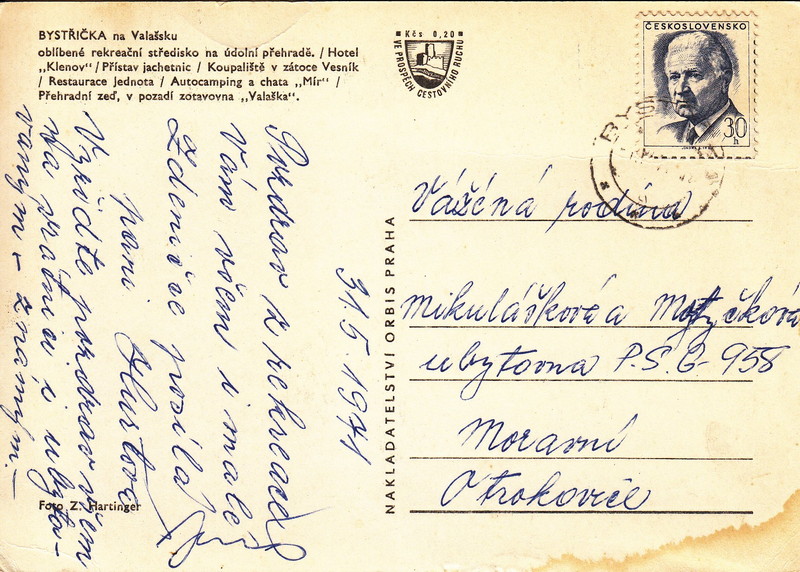 BYSTŘIČKA na Valašsku
oblíbené rekreační středisko na údolní přehradě. / Hotel
„Klenov“ / Přístav jachetnic / Koupaliště v zátoce Vesník
/ Restaurace Jednota / Autocamping a chata „Mír“ /
Přehradní zeď, v pozadí zotavovna „Valaška“.
Kčs 0,20
VE PROSPĚCH CESTOVNÍHO RUCHU
ČESKOSLOVENSKO
30
h
31.5.1971
Pozdrav z rekreace
Vám všem i malé
Zdeničce posílá
paní Hurtová
Vyřiďte pozdrav všem
na prádnici i ubyto-
vaným – známým. –
NAKLADATELSTVÍ ORBIS PRAHA
Vážéná rodina
Mikulášková a Motyčková
ubytovna P.S.G-958
Moravní
Otrokovice
Foto Z. Hartinger